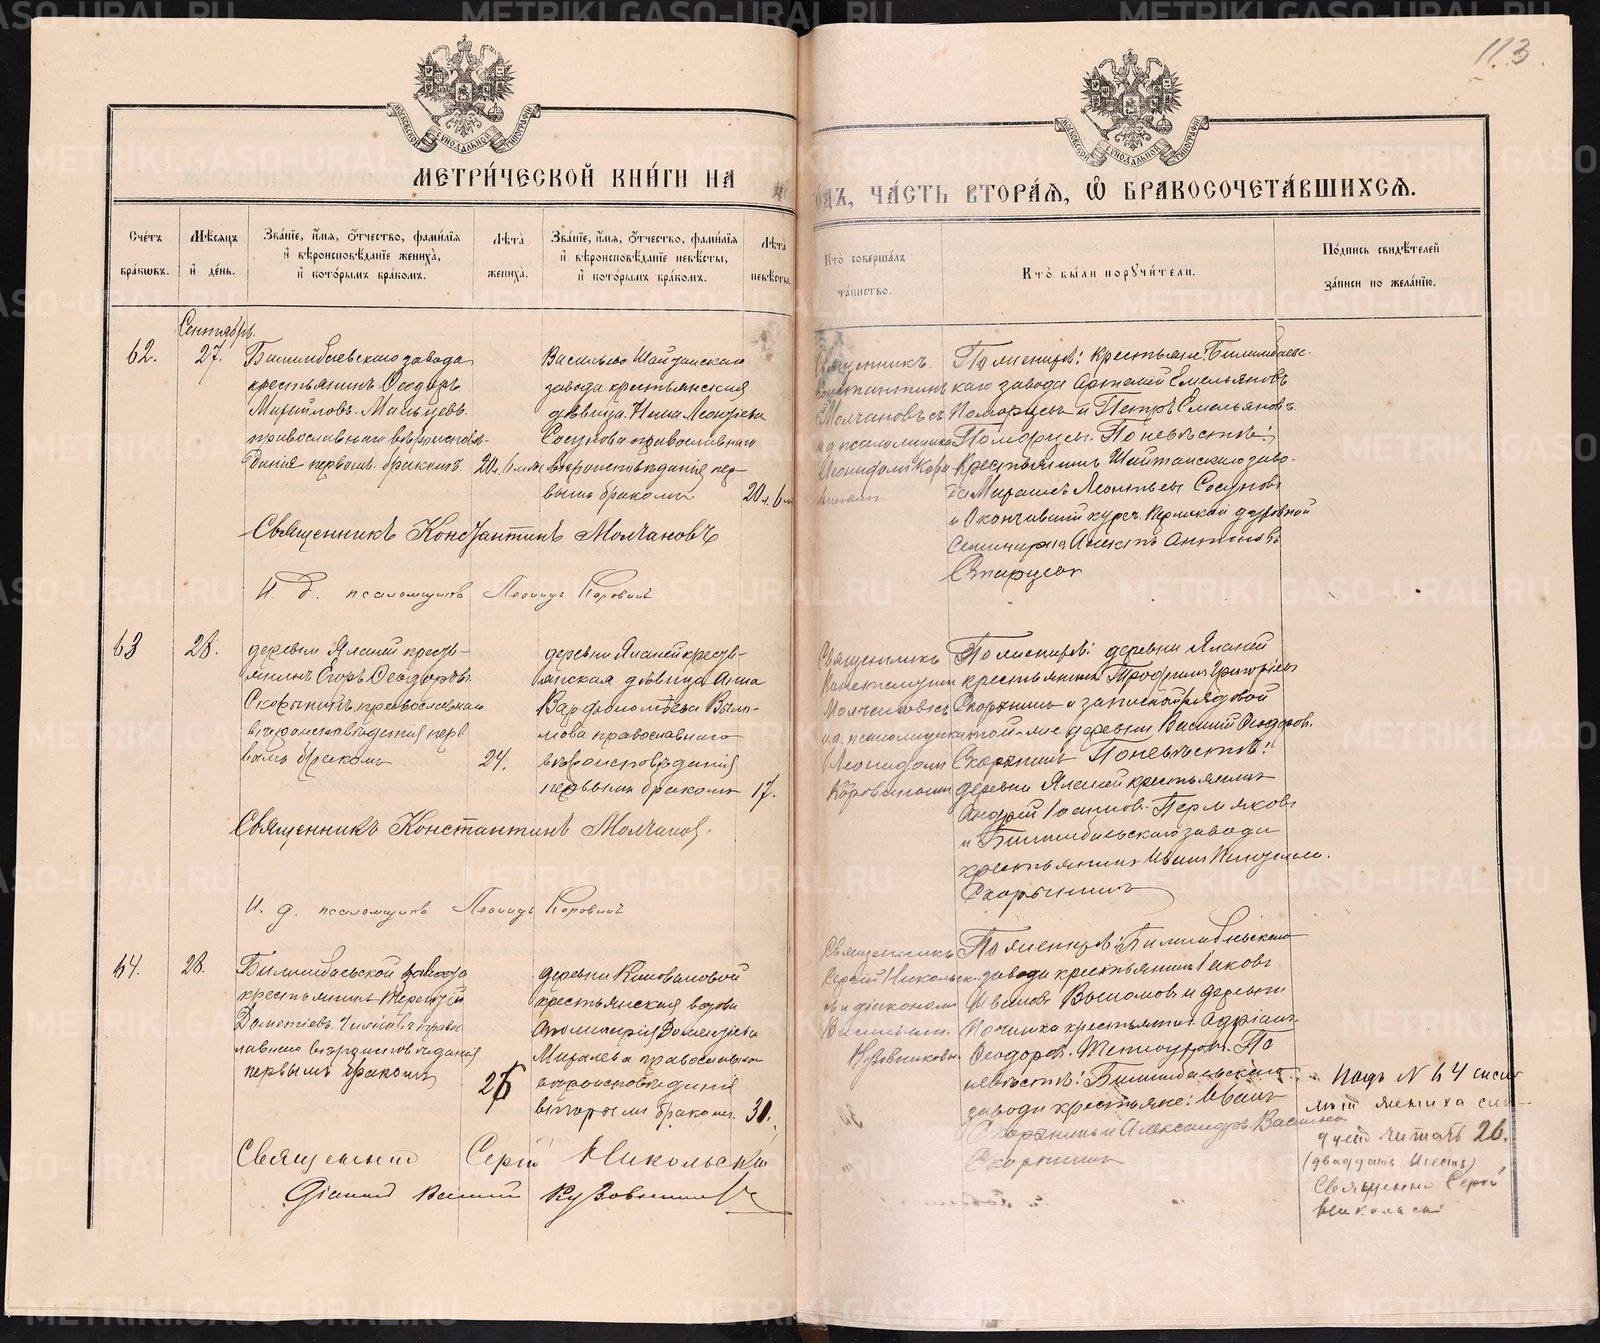 113.
МЕТРИ́ЧЕСКОЙ КНИ́ГИ НА
ГО́ДЪ, ЧА́СТЬ ВТОРА́Я, Ѽ БРАКОСОЧЕТА́ВШИХСЯ.
Сче́тъ бра́кѡвъ.
Мѣ́сяцъ и҆ де́нь.
Зва́нїе, и҆́мя, ѻ҆́тчество, фами́лїя и҆ вѣроисповѣ́данїе жениха̀, и҆ кото́рымъ бра́комъ.
Лѣта̀ жениха̀.
Зва́нїе, и҆́мя, ѻ҆́тчество, фами́лїя и҆ вѣроисповѣ́данїе невѣ́сты, и҆ кото́рымъ бра́комъ.
Лѣта̀ невѣ́сты.
Кто̀ соверша́лъ та́инство.
Кто̀ бы́ли порꙋчи́тели.
По́дпись свидѣ́телей за́писи по жела́нїю.
Сентябрь.
62.
27.
Билимбаевскаго завода
крестьянинъ Ѳеодоръ
Михайловъ Мальцевъ
православнаго вѣроисповѣ-
данія первымъ бракомъ
20 л. 6 м.
Васильево Шайтанскаго
завода крестьянская
дѣвица Анна Леонтіева
Сосунова православнаго
вѣроисповѣданія пер-
вымъ бракомъ
20 л. 6 м.
Священникъ
Константинъ
Молчановъ съ
и д псаломщика
Леонидомъ Коро
винымъ
По женихѣ: крестьяне: Билимбаевс-
каго завода Артемій Емельяновъ
Поморцевъ и Петръ Емельяновъ
Поморцевъ. По невѣстѣ:
Крестьянинъ Шайтанскаго заво-
да Михаилъ Леонтьевъ Сосуновъ
и Окончившій курсъ Пермской духовной
Семинаріи
Старцевъ
Священникъ Константинъ Молчановъ
И. д. псаломщика Леонидъ Коровинъ
63
28.
деревни Яланей кресть-
янинъ Егоръ Ѳеодоровъ
Скорынинъ православнаго
вѣроисповѣданія пер
вымъ бракомъ
24.
деревни Яланей кресть-
янская дѣвица Анна
Варѳоломѣева
православнаго
вѣроисповѣданія
первымъ бракомъ
17.
Священникъ
Константинъ
Молчановъ съ
и д. псаломщика
Леонидомъ
Коровинымъ
По женихѣ: деревни Яланей
крестьянинъ Трофимъ Григорьевъ
Скорынинъ и запасной рядовой
той-же деревни Василій Ѳеодоров.
Скорынинъ По невѣстѣ:
деревни Яланей крестьянинъ
Андрей Іоанновъ Пермяковъ
и Билимбаевскаго завода
крестьянинъ Иванъ
Скорынинъ
Священникъ Константинъ Молчановъ.
И. д. псаломщика Леонидъ Коровинъ
64.
28.
Билимбаевскаго завода
крестьянинъ Терентій
Дометіевъ правос
лавнаго вѣроисповѣданія
первымъ бракомъ
26
деревни Коноваловой
крестьянская вдова
Дометіева
Михалева православнаго
вѣроисповѣданія
вторымъ бракомъ.
30.
Священникъ
Сергій Никольск-
ій и діаконъ
Василій
Кузовниковъ
По женихѣ: Билимбаевскаго
завода крестьянинъ Іаковъ
Ивановъ и деревни
Починка крестьянинъ Адріанъ
Ѳеодоровъ По
невѣстѣ: Билимбаевскаго
завода крестьяне: Иванъ
Скорынинъ и Александръ Васильевъ
Скорынинъ
Подъ № 64
жениха
читать 26.
(двадцать шесть)
Священникъ Сергій
Никольскій
Священникъ Сергій Никольскій
Діаконъ Василій Кузовниковъ
METRIKI.GASO-URAL.RU